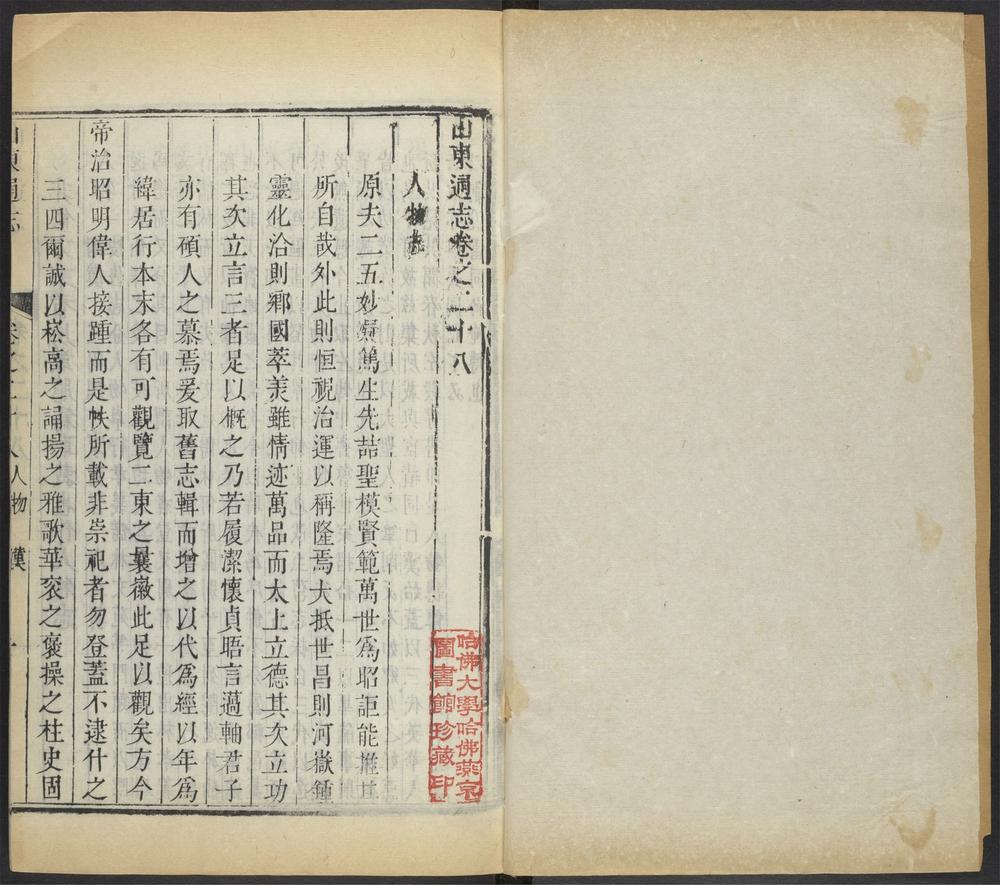 山東通志卷之二十八
人物志
原夫二五妙凝篤生先喆聖模賢範萬世爲昭詎能推其
所自哉外此則恒視治運以稱隆焉大抵世昌則河嶽鍾
靈化洽則鄉國萃美雖情迹萬品而太上立德其次立功
其次立言三者足以槪之乃若履潔懷貞晤言薖軸君子
亦有碩人之慕焉爰取舊志輯而增之以代爲經以年爲
緯居行本末各有可觀覽二東之曩徽此足以觀矣方今
帝治昭明偉人接踵而是帙所載非崇祀者勿登蓋不逮什之
三四爾誠以崧高之誦揚之雅歌華衮之褒操之柱史固
山東通志 卷之二十八 人物 漢 一
哈佛大學哈佛燕京
圖書館珍藏印